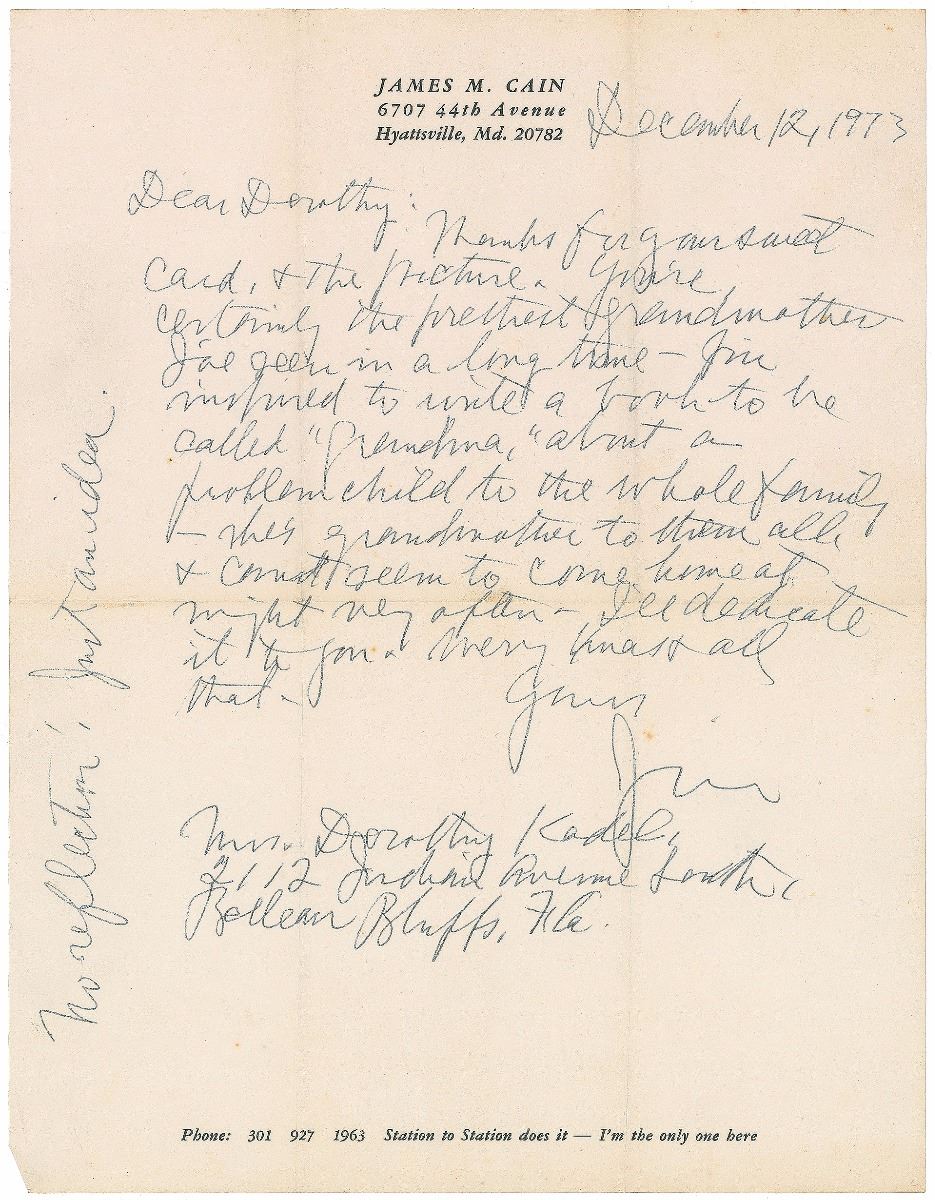 JAMES M. CAIN
6707 44th Avenue
Hyattsville, Md. 20782
December 12, 1973
Dear Dorothy:
Thanks for your sweet
card, & the picture. You're
certainly the prettiest grandmother
I've seen in a long time — I'm
inspired to write a book to be
called "Grandma," about a
problem child to the whole family
— she's grandmother to them all
& can't seem to come home at
night very often. I'll dedicate
it to you. Merry Xmas & all
that.
Yours
Jim
Mrs. Dorothy Kadel,
2112 Indian Avenue South,
Belleair Bluffs, Fla.
No reflection, just an idea.
Phone: 301 927 1963 Station to Station does it — I'm the only one here